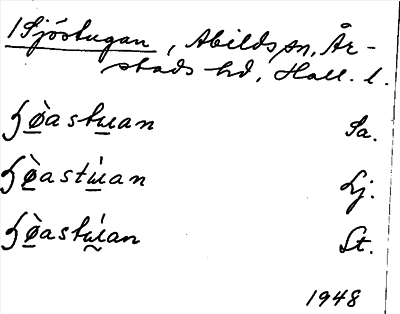 /Sjöstugan, Abilds sn, År-
stads hd, Hall. l.
ɧø̱̀astu̱an Sa.
ɧø̱̀astu̱̍an Lj.
ɧø̱̀astṵ́an St.
1948